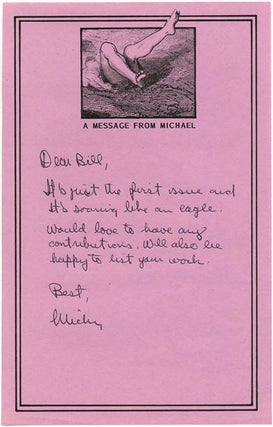 A MESSAGE FROM MICHAEL
Dear Bill,
It's just the first issue and
it's soaring like an eagle.
Would love to have any
contributions. Will also be
happy to list your work.
Best,